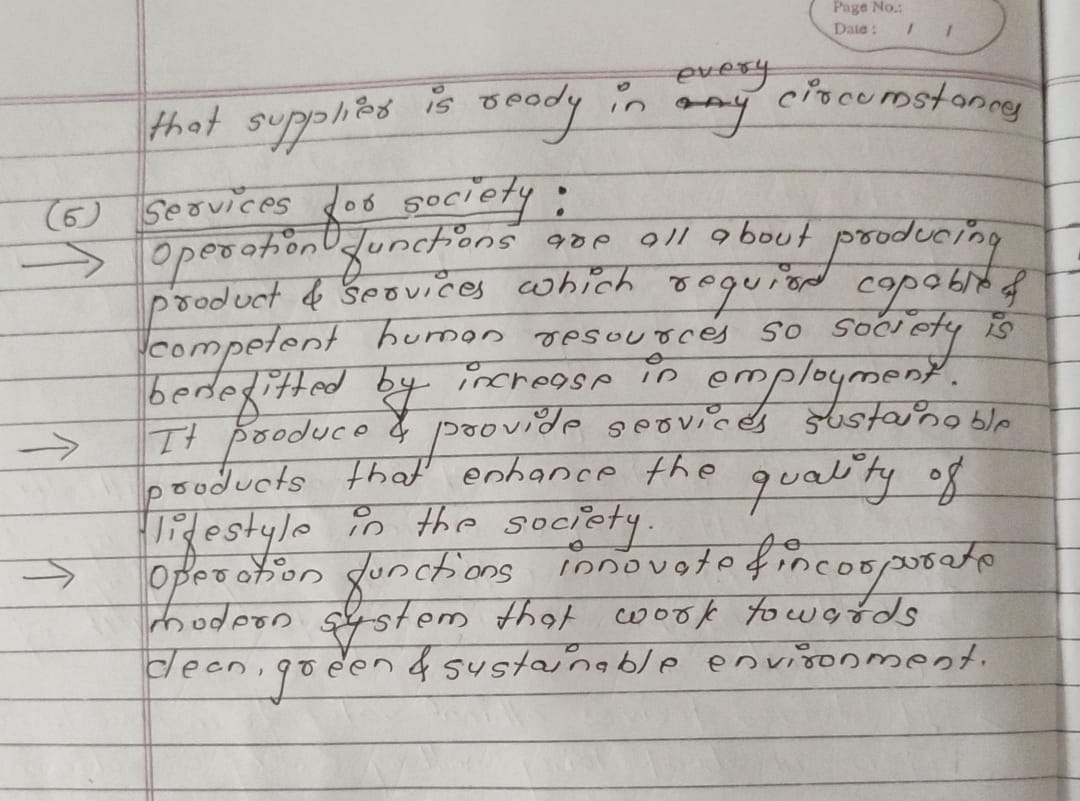 Page No.:
Date : / /
every
that supplier is ready in any circumstances
(5) Services for society :
→ Operation functions are all about producing
product & services which required capable &
competent human resources so society is
benefitted by increase in employment.
→ It produce & provide services sustainable
products that enhance the quality of
lifestyle in the society.
→ Operation functions innovate & incorporate
modern system that work towards
clean, green & sustainable environment.